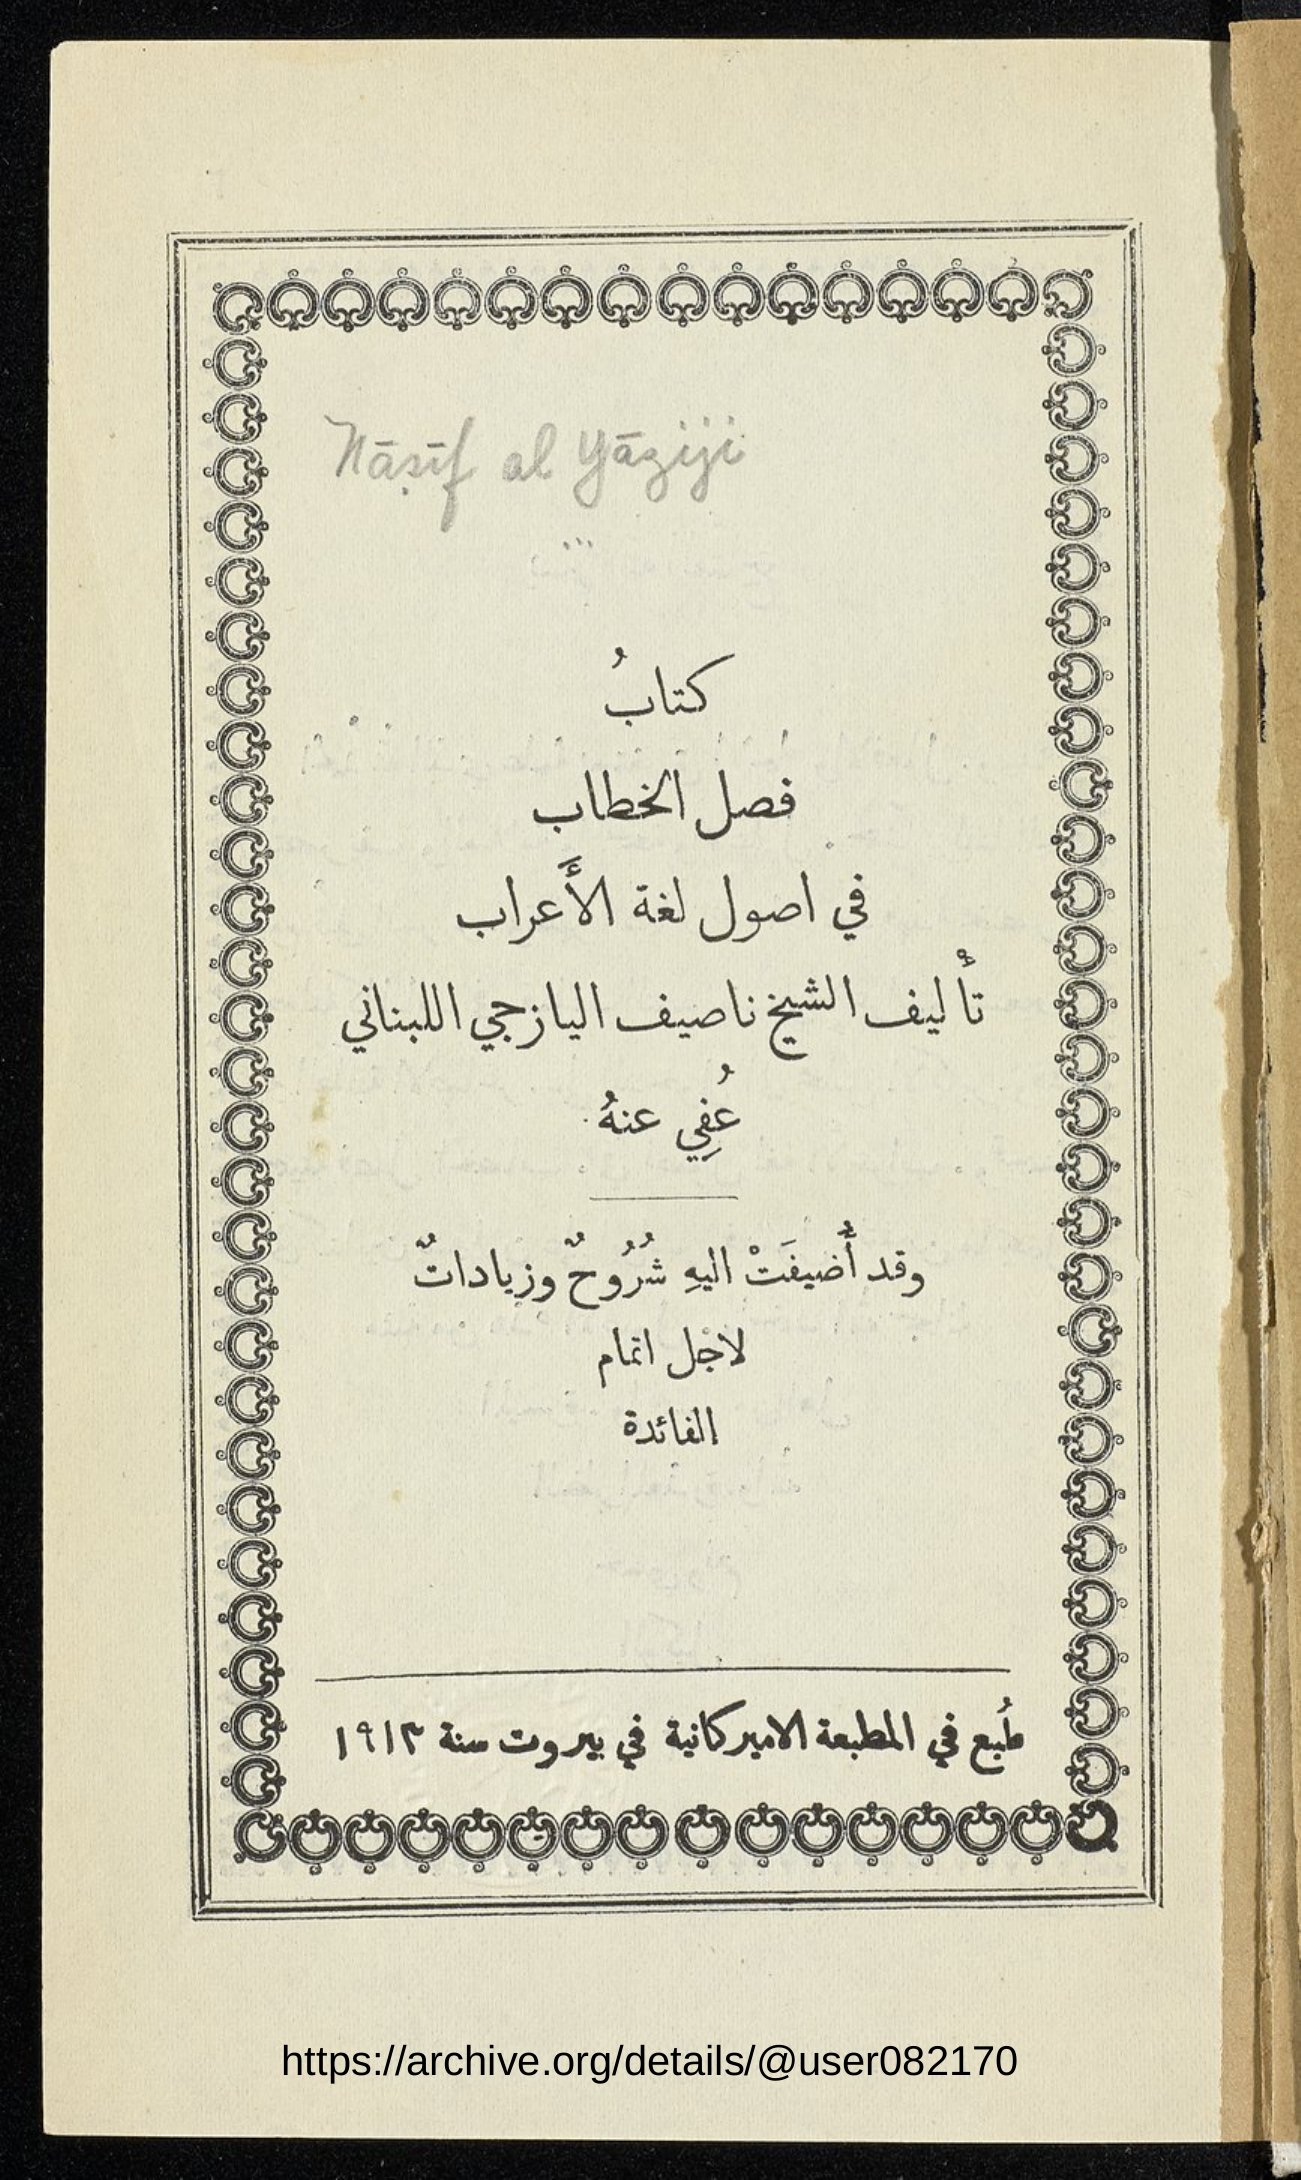 Nāṣīf al Yāziji
كتابُ
فصل الخطاب
في اصول لغة الأَعراب
تأليف الشيخ ناصيف اليازجي اللبناني
عُفِي عنهُ
وقد أُضيفَتْ اليهِ شُرُوحٌ وزياداتٌ
لاجْل اتمام
الفائدة
طُبع في المطبعة الاميركانية في بيروت سنة ١٩١٣
https://archive.org/details/@user082170